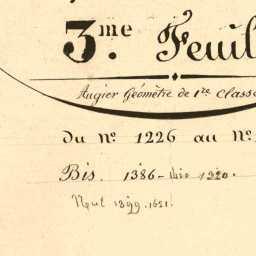 3.me Feuil
Augier Géomètre de 1re Classe
du No. 1226 au No.
Bis. 1386 - bis 1220.
1899.1621.